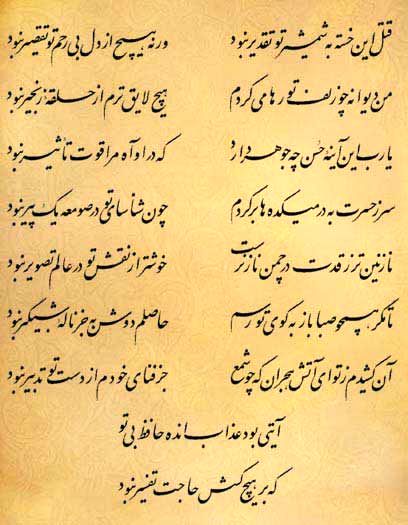 قتل این خسته به شمشیر تو تقدیر نبود ورنه هیچ از دل بی رحم تو تقصیر نبود
من دیوانه چو زلف تو رها می کردم هیچ لایق ترم از حلقه زنجیر نبود
یارب این آینه حسن چه جوهر دارد که در او آه مرا قوت تأثیر نبود
سر ز حسرت به در میکده ها برکردم چون شناسای تو در صومعه یک پیر نبود
نازنین تر ز قدت در چمن ناز نرست خوشتر از نقش تو در عالم تصویر نبود
تا مگر همچو صبا باز به کوی تو رسم حاصلم دوش به جز ناله شبگیر نبود
آن کشیدم ز تو ای آتش هجران که چو شمع جز فنای خودم از دست تو تدبیر نبود
آیتی بود عذاب انده حافظ بی تو
که بر هیچ کسش حاجت تفسیر نبود